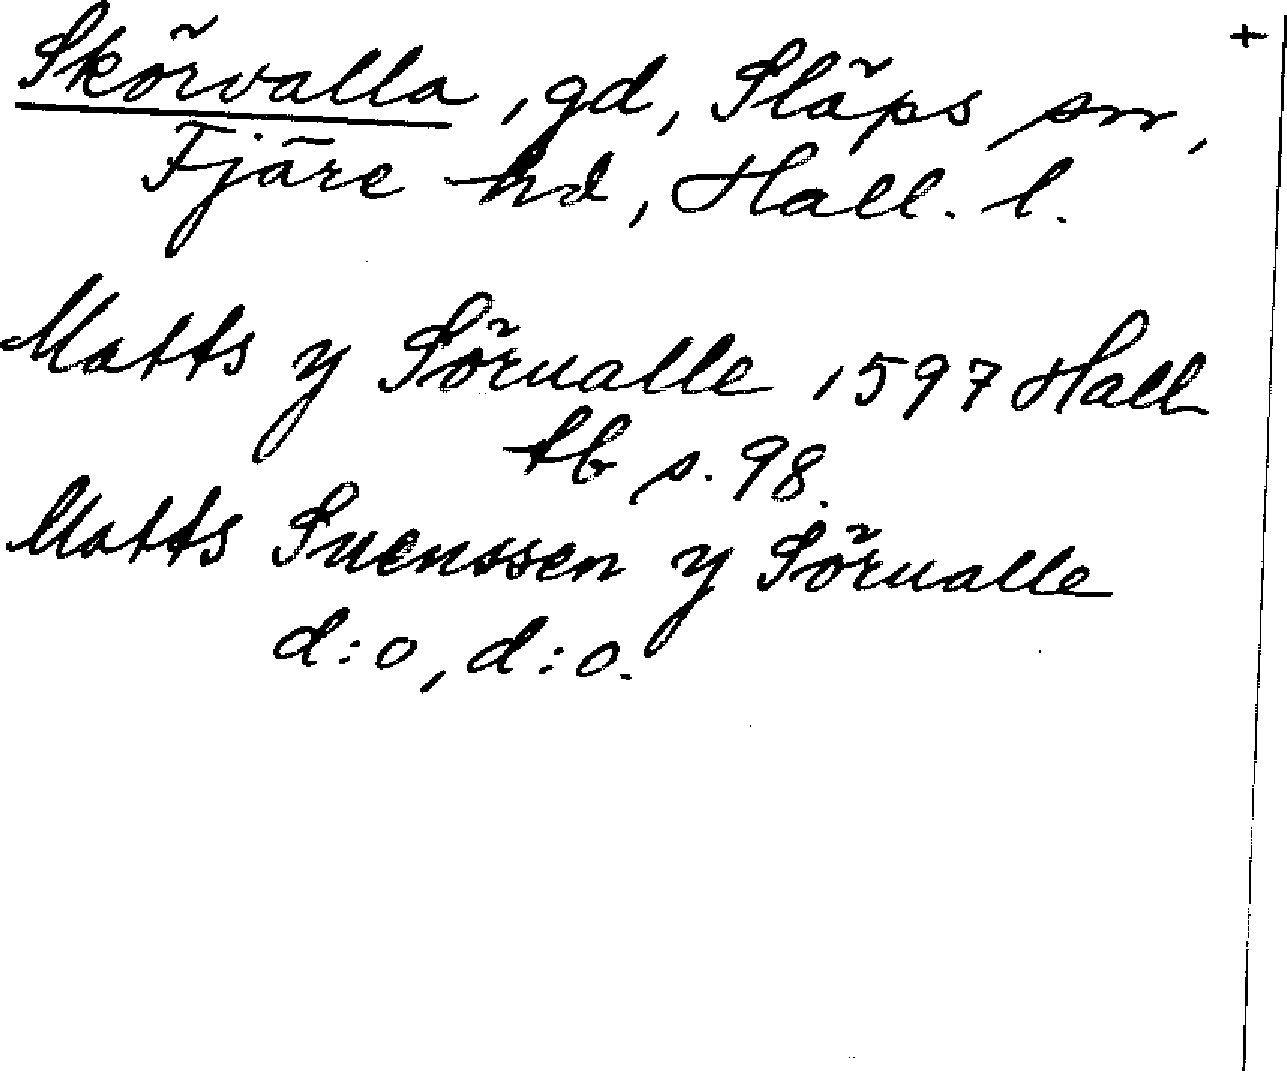 Skörvalla, gd, Släps sn, +
Fjäre hd, Hall. l.
Matts y Sörualle 1597 Hall
tb s. 98.
Matts Suenssen y Sörualle
d:o, d:o.